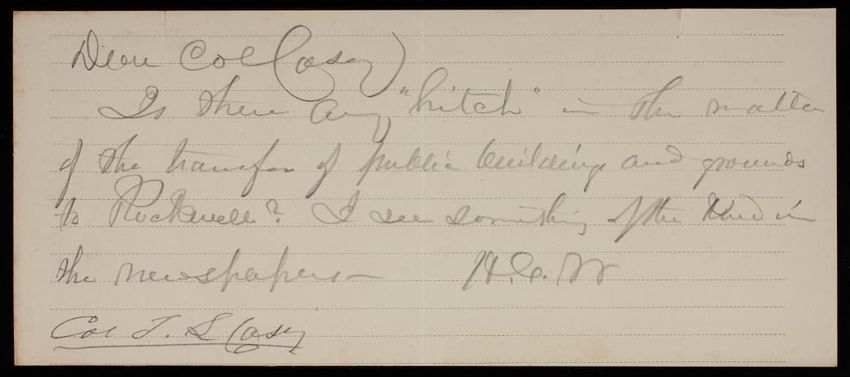 Dear Col Casey
Is there any "hitch" in the matter
of the transfer of public buildings and grounds
to Rockwell? I see something of the kind in
the newspapers—   H.C.W
Col T. L Casey